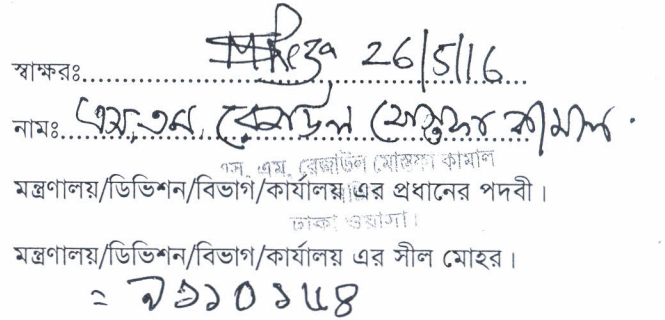 স্বাক্ষরঃ..........MReza 26/5/16..........
নামঃ..এস, এম, রেজাউল মোস্তফা কামাল.
এস. এম. রেজাউল মোস্তফা কামাল
মন্ত্রণালয়/ডিভিশন/বিভাগ/কার্যালয় এর প্রধানের পদবী।
ঢাকা ওয়াসা।
মন্ত্রণালয়/ডিভিশন/বিভাগ/কার্যালয় এর সীল মোহর।